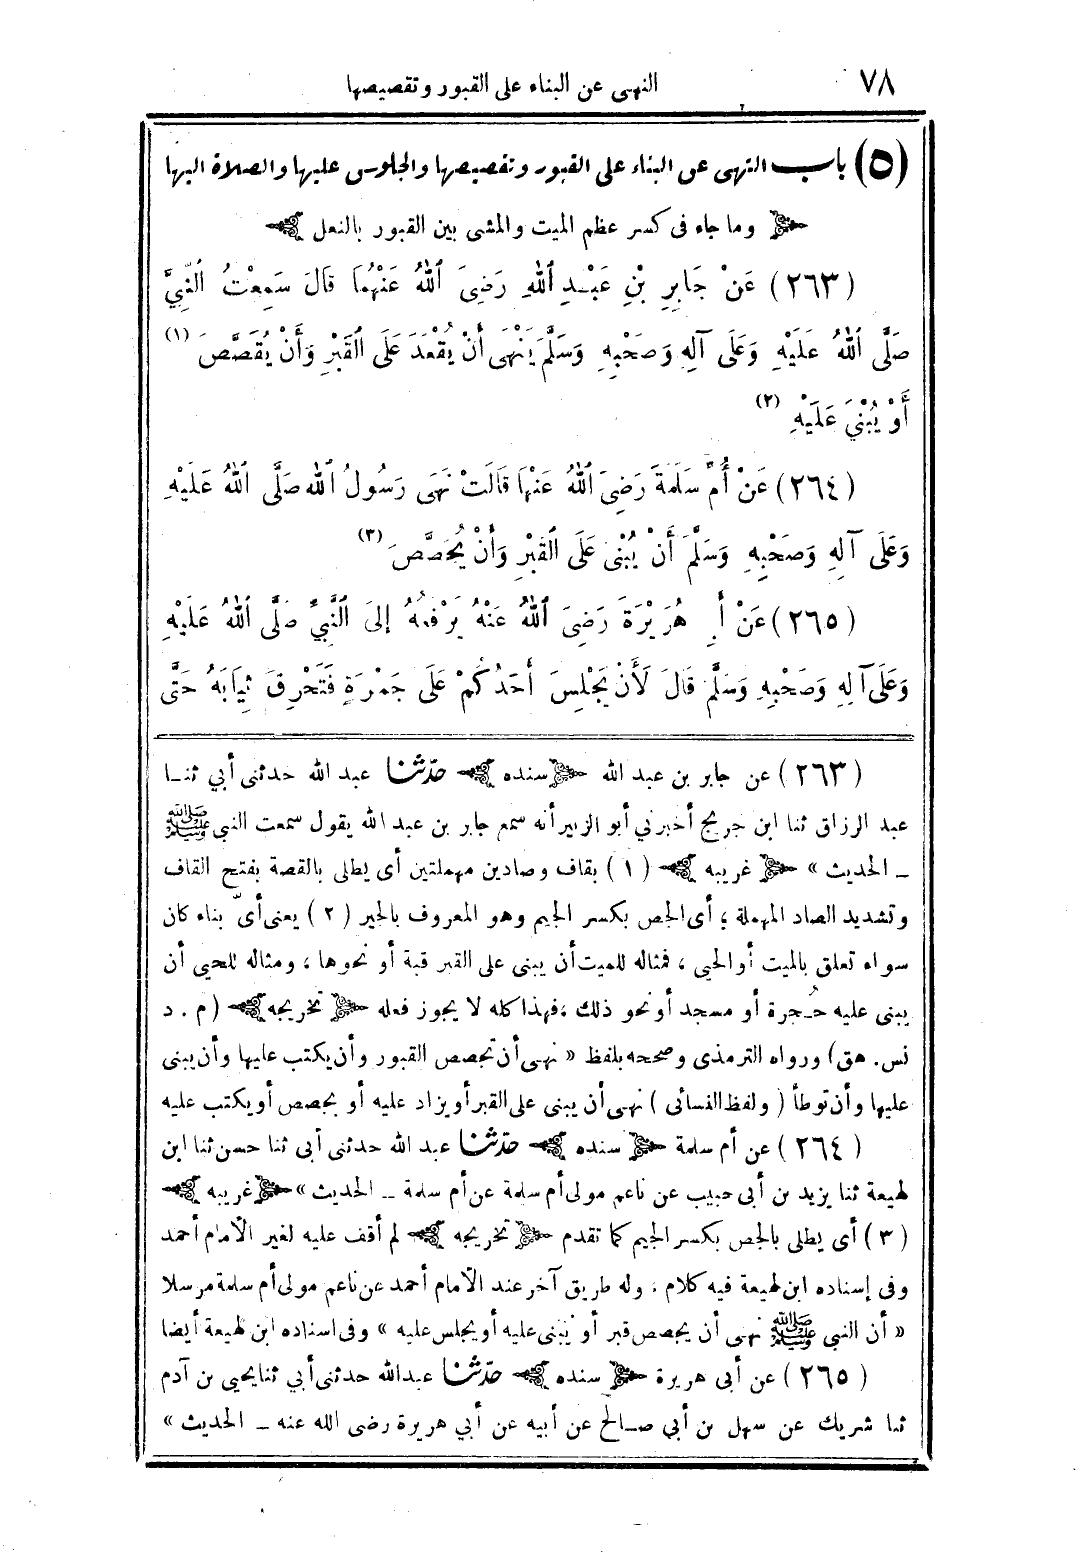 ٧٨
النهى عن البناء على القبور وتقصيصها
(٥) باب النهى عن البناء على القبور وتقصيصها والجلوس عليها والصلاة اليها
وما جاء فى كسر عظم الميت والمشى بين القبور بالنعل
(٢٦٣) عَنْ جَابِرِ بْنِ عَبْدِ اللهِ رَضِىَ اللهُ عَنْهُمَا قَالَ سَمِعْتُ النَّبِيَّ
صَلَّى اللهُ عَلَيْهِ وَعَلَى آلِهِ وَصَحْبِهِ وَسَلَّمَ يَنْهَى أَنْ يُقْعَدَ عَلَى القَبْرِ وَأَنْ يُقَصَّصَ (١)
أَوْ يُبْنَى عَلَيْهِ (٢)
(٢٦٤) عَنْ أُمِّ سَلَمَةَ رَضِىَ اللهُ عَنْهَا قَالَتْ نَهَى رَسُولُ اللهِ صَلَّى اللهُ عَلَيْهِ
وَعَلَى آلِهِ وَصَحْبِهِ وَسَلَّمَ أَنْ يُبْنَى عَلَى القَبْرِ وَأَنْ يُجَصَّصَ (٣)
(٢٦٥) عَنْ أَبِى هُرَيْرَةَ رَضِىَ اللهُ عَنْهُ يَرْفَعُهُ إلَى النَّبِيِّ صَلَّى اللهُ عَلَيْهِ
وَعَلَى آلِهِ وَصَحْبِهِ وَسَلَّمَ قَالَ لَأَنْ يَجْلِسَ أَحَدُكُمْ عَلَى جَمْرَةٍ فَتَحْرِقَ ثِيَابَهُ حَتَّى
(٢٦٣) عن جابر بن عبد الله سنده حدّثنا عبد الله حدثنى أبي ثنا
عبد الرزاق ثنا ابن جريج أخبرني أبو الزبير أنه سمع جابر بن عبد الله يقول سمعت النبى ﷺ
ـ الحديث » غريبه (١) بقاف وصادين مهملتين أى يطلى بالقصة بفتح القاف
وتشديد الصاد المهملة ؛ أى الجص بكسر الجيم وهو المعروف بالجير (٢) يعنى أىّ بناء كان
سواء تعلق بالميت أو الحى ، فمثاله للميت أن يبنى على القبر قبة أو نحوها ، ومثاله للحى أن
يبنى عليه حُجرة أو مسجد أو نحو ذلك ، فهذا كله لا يجوز فعله تخريجه (م . د
نس . هق) ورواه الترمذى وصححه بلفظ « نهى أن تجصص القبور وأن يكتب عليها وأن يبنى
عليها وأن توطأ (ولفظ النسائى) نهى أن يبنى على القبر أو يزاد عليه أو يجصص أو يكتب عليه
(٢٦٤) عن أم سلمة سنده حدّثنا عبد الله حدثنى أبى ثنا حسن ثنا ابن
لهيعة ثنا يزيد بن أبى حبيب عن ناعم مولى أم سلمة عن أم سلمة ـ الحديث » غريبه
(٣) أى يطلى بالجص بكسر الجيم كما تقدم تخريجه لم أقف عليه لغير الأمام أحمد
وفى إسناده ابن لهيعة فيه كلام ، وله طريق آخر عند الأمام أحمد عن ناعم مولى أم سلمة مرسلا
« أن النبي ﷺ نهى أن يجصص قبر أو يبنى عليه أو يجلس عليه » وفى اسناده ابن لهيعة أيضا
(٢٦٥) عن أبى هريرة سنده حدّثنا عبد الله حدثنى أبي ثنا يحيى بن آدم
ثنا شريك عن سهل بن أبي صالح عن أبيه عن أبي هريرة رضى الله عنه ـ الحديث »